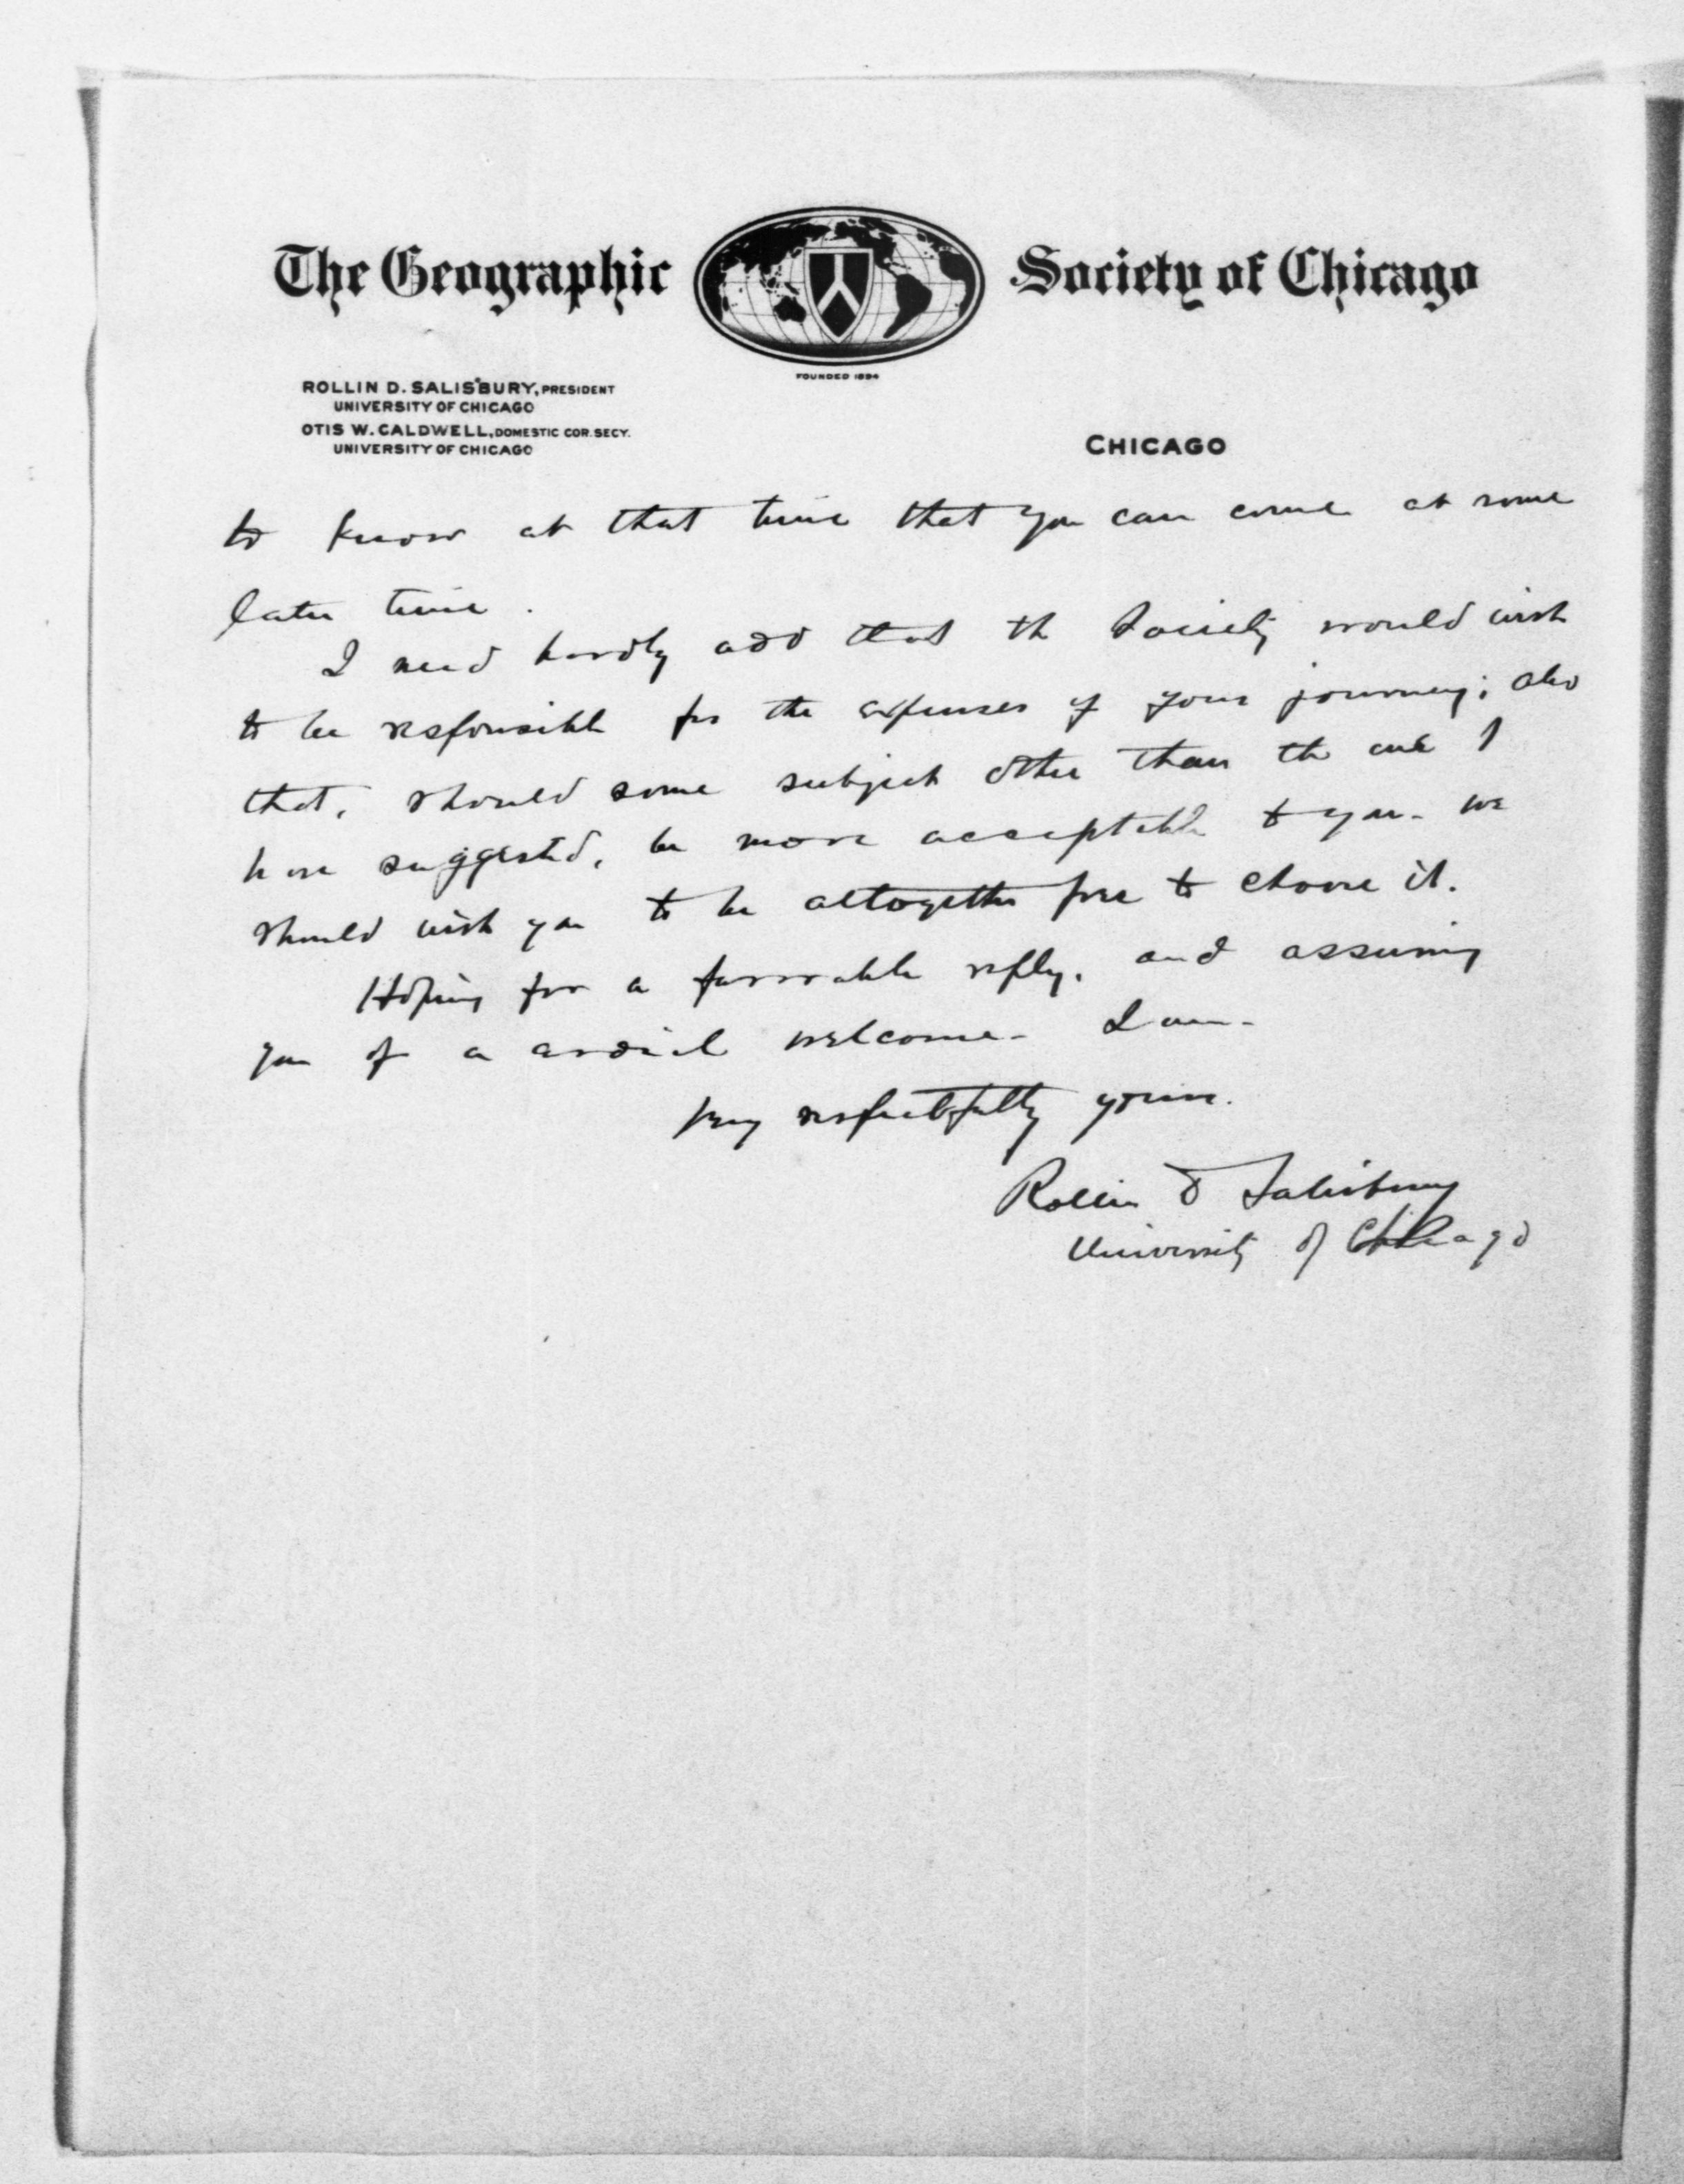 The Geographic Society of Chicago
FOUNDED 1894
ROLLIN D. SALISBURY, PRESIDENT
UNIVERSITY OF CHICAGO
OTIS W. CALDWELL, DOMESTIC COR. SECY.
UNIVERSITY OF CHICAGO
CHICAGO
to know at that time that you can come at some
later time.
I need hardly add that the Society would wish
to be responsible for the expenses of your journey; also
that, should some subject other than the one I
have suggested, be more acceptable to you - we
should wish you to be altogether free to choose it.
Hoping for a favorable reply, and assuring
you of a cordial welcome - I am -
Very respectfully yours.
Rollin D Salisbury
University of Chicago